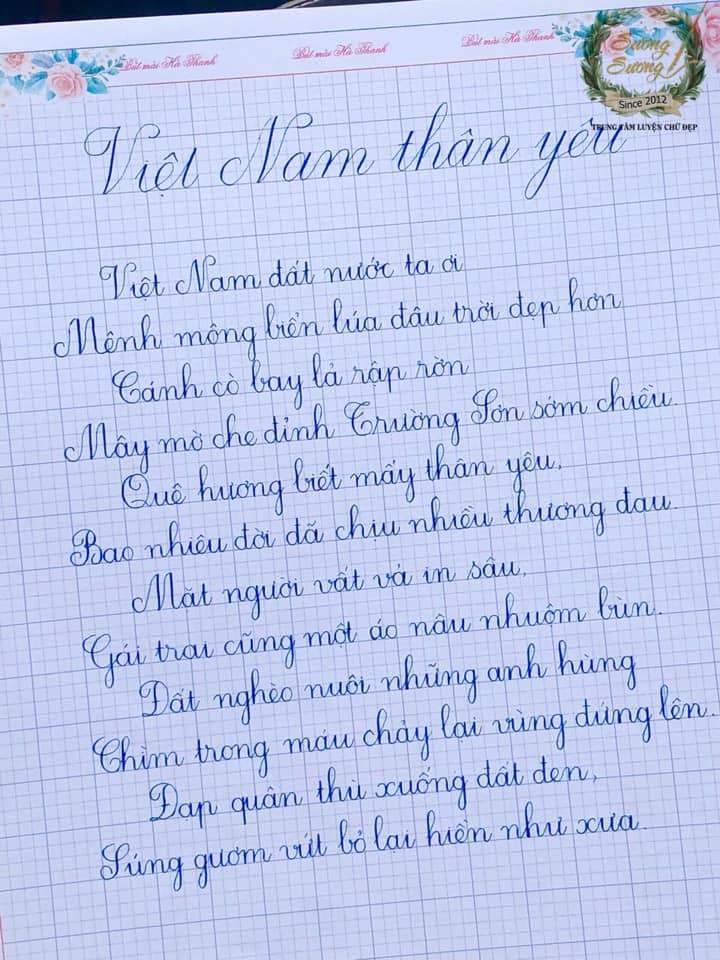 Bút mài Hà Thanh
Bút mài Hà Thanh
Bút mài Hà Thanh
Sương
Sương
Since 2012
TRUNG TÂM LUYỆN CHỮ ĐẸP
Việt Nam thân yêu
Việt Nam đất nước ta ơi
Mênh mông biển lúa đâu trời đẹp hơn
Cánh cò bay lả rập rờn
Mây mờ che đỉnh Trường Sơn sớm chiều.
Quê hương biết mấy thân yêu,
Bao nhiêu đời đã chịu nhiều thương đau.
Mặt người vất vả in sâu,
Gái trai cũng một áo nâu nhuộm bùn.
Đất nghèo nuôi những anh hùng
Chìm trong máu chảy lại vùng đứng lên.
Đạp quân thù xuống đất đen,
Súng gươm vứt bỏ lại hiền như xưa.